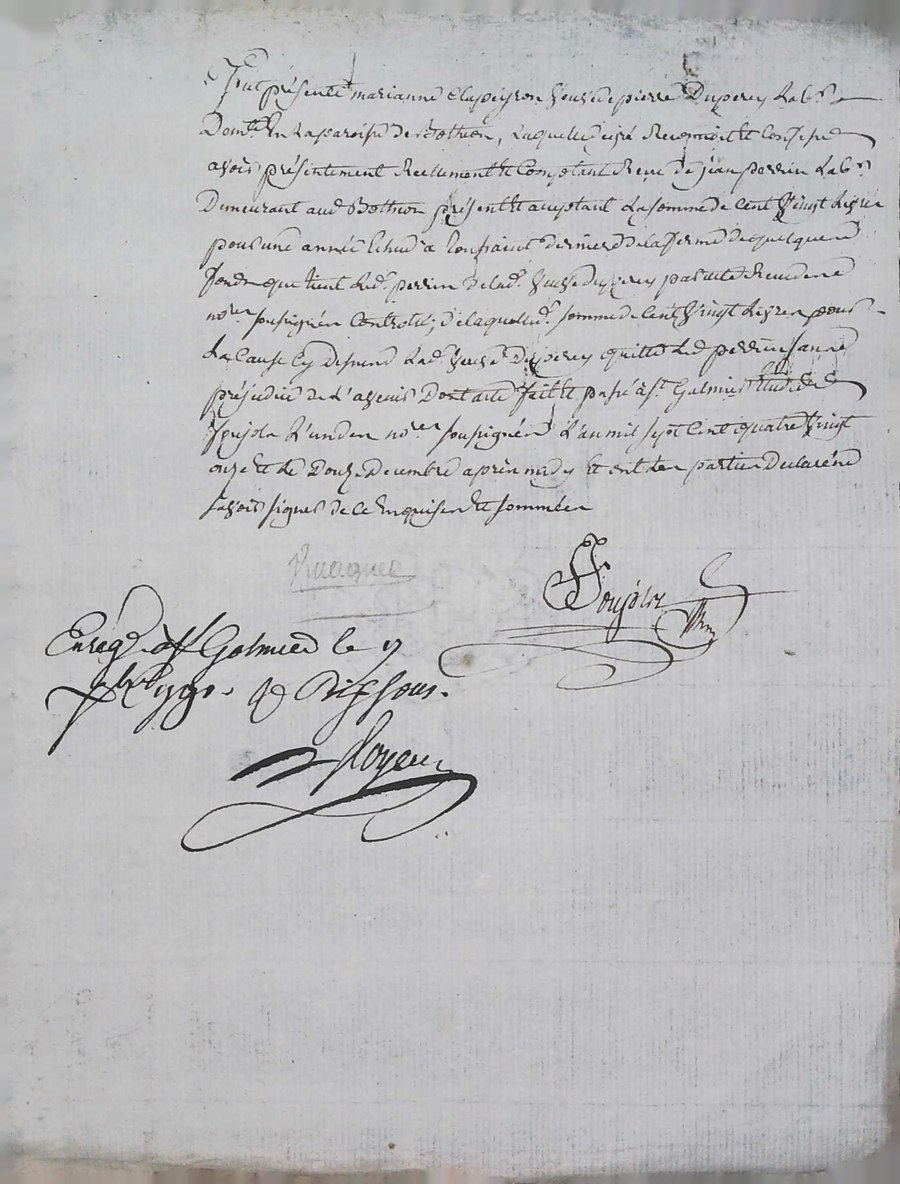 Fut présente marianne Clapeyron veuve de pierre Duperey Lab.r
Dom.te En La paroise de Bothion, Laquelle de gré Reconnoit et Confesse
avoir présentement Reellement et Comptant Receu de jean perrin Lab.r
Demeurant aud. Bothion présent et aceptant La somme de Cent Vingt Livres
pour une année Echue a La toussaint derniere de La ferme de quelques
fonds que tient Led. perrin de Lad. veuve Duperey par acte Receu des
no.res soussignés Controllé; de laquelle d. somme de Cent Vingt Livres pour
La Cause Cy dessus Lad. veuve Duperey quitte Led. perrin sans
préjudice de L'avenir Dont acte fait et passé a S.t Galmier Etude de
L'un des no.res soussignés L'an mil sept Cent quatre Vingt
onze et Le Douze Decembre aprés midy Et ont Les parties Declaré ne
savoir signer de Ce Enquises et sommées
Enrégé. à S.t Galmier le 17
Xbre 1791. R Dix sous.